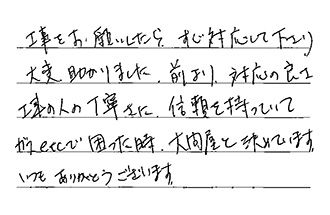 工事をお願いしたら、すぐ対応して下さり
大変助かりました。前より、対応の良さ
工事の人の丁寧さに、信頼を持っていて
etcで困った時、大間屋と決めています。
いつもありがとうございます。